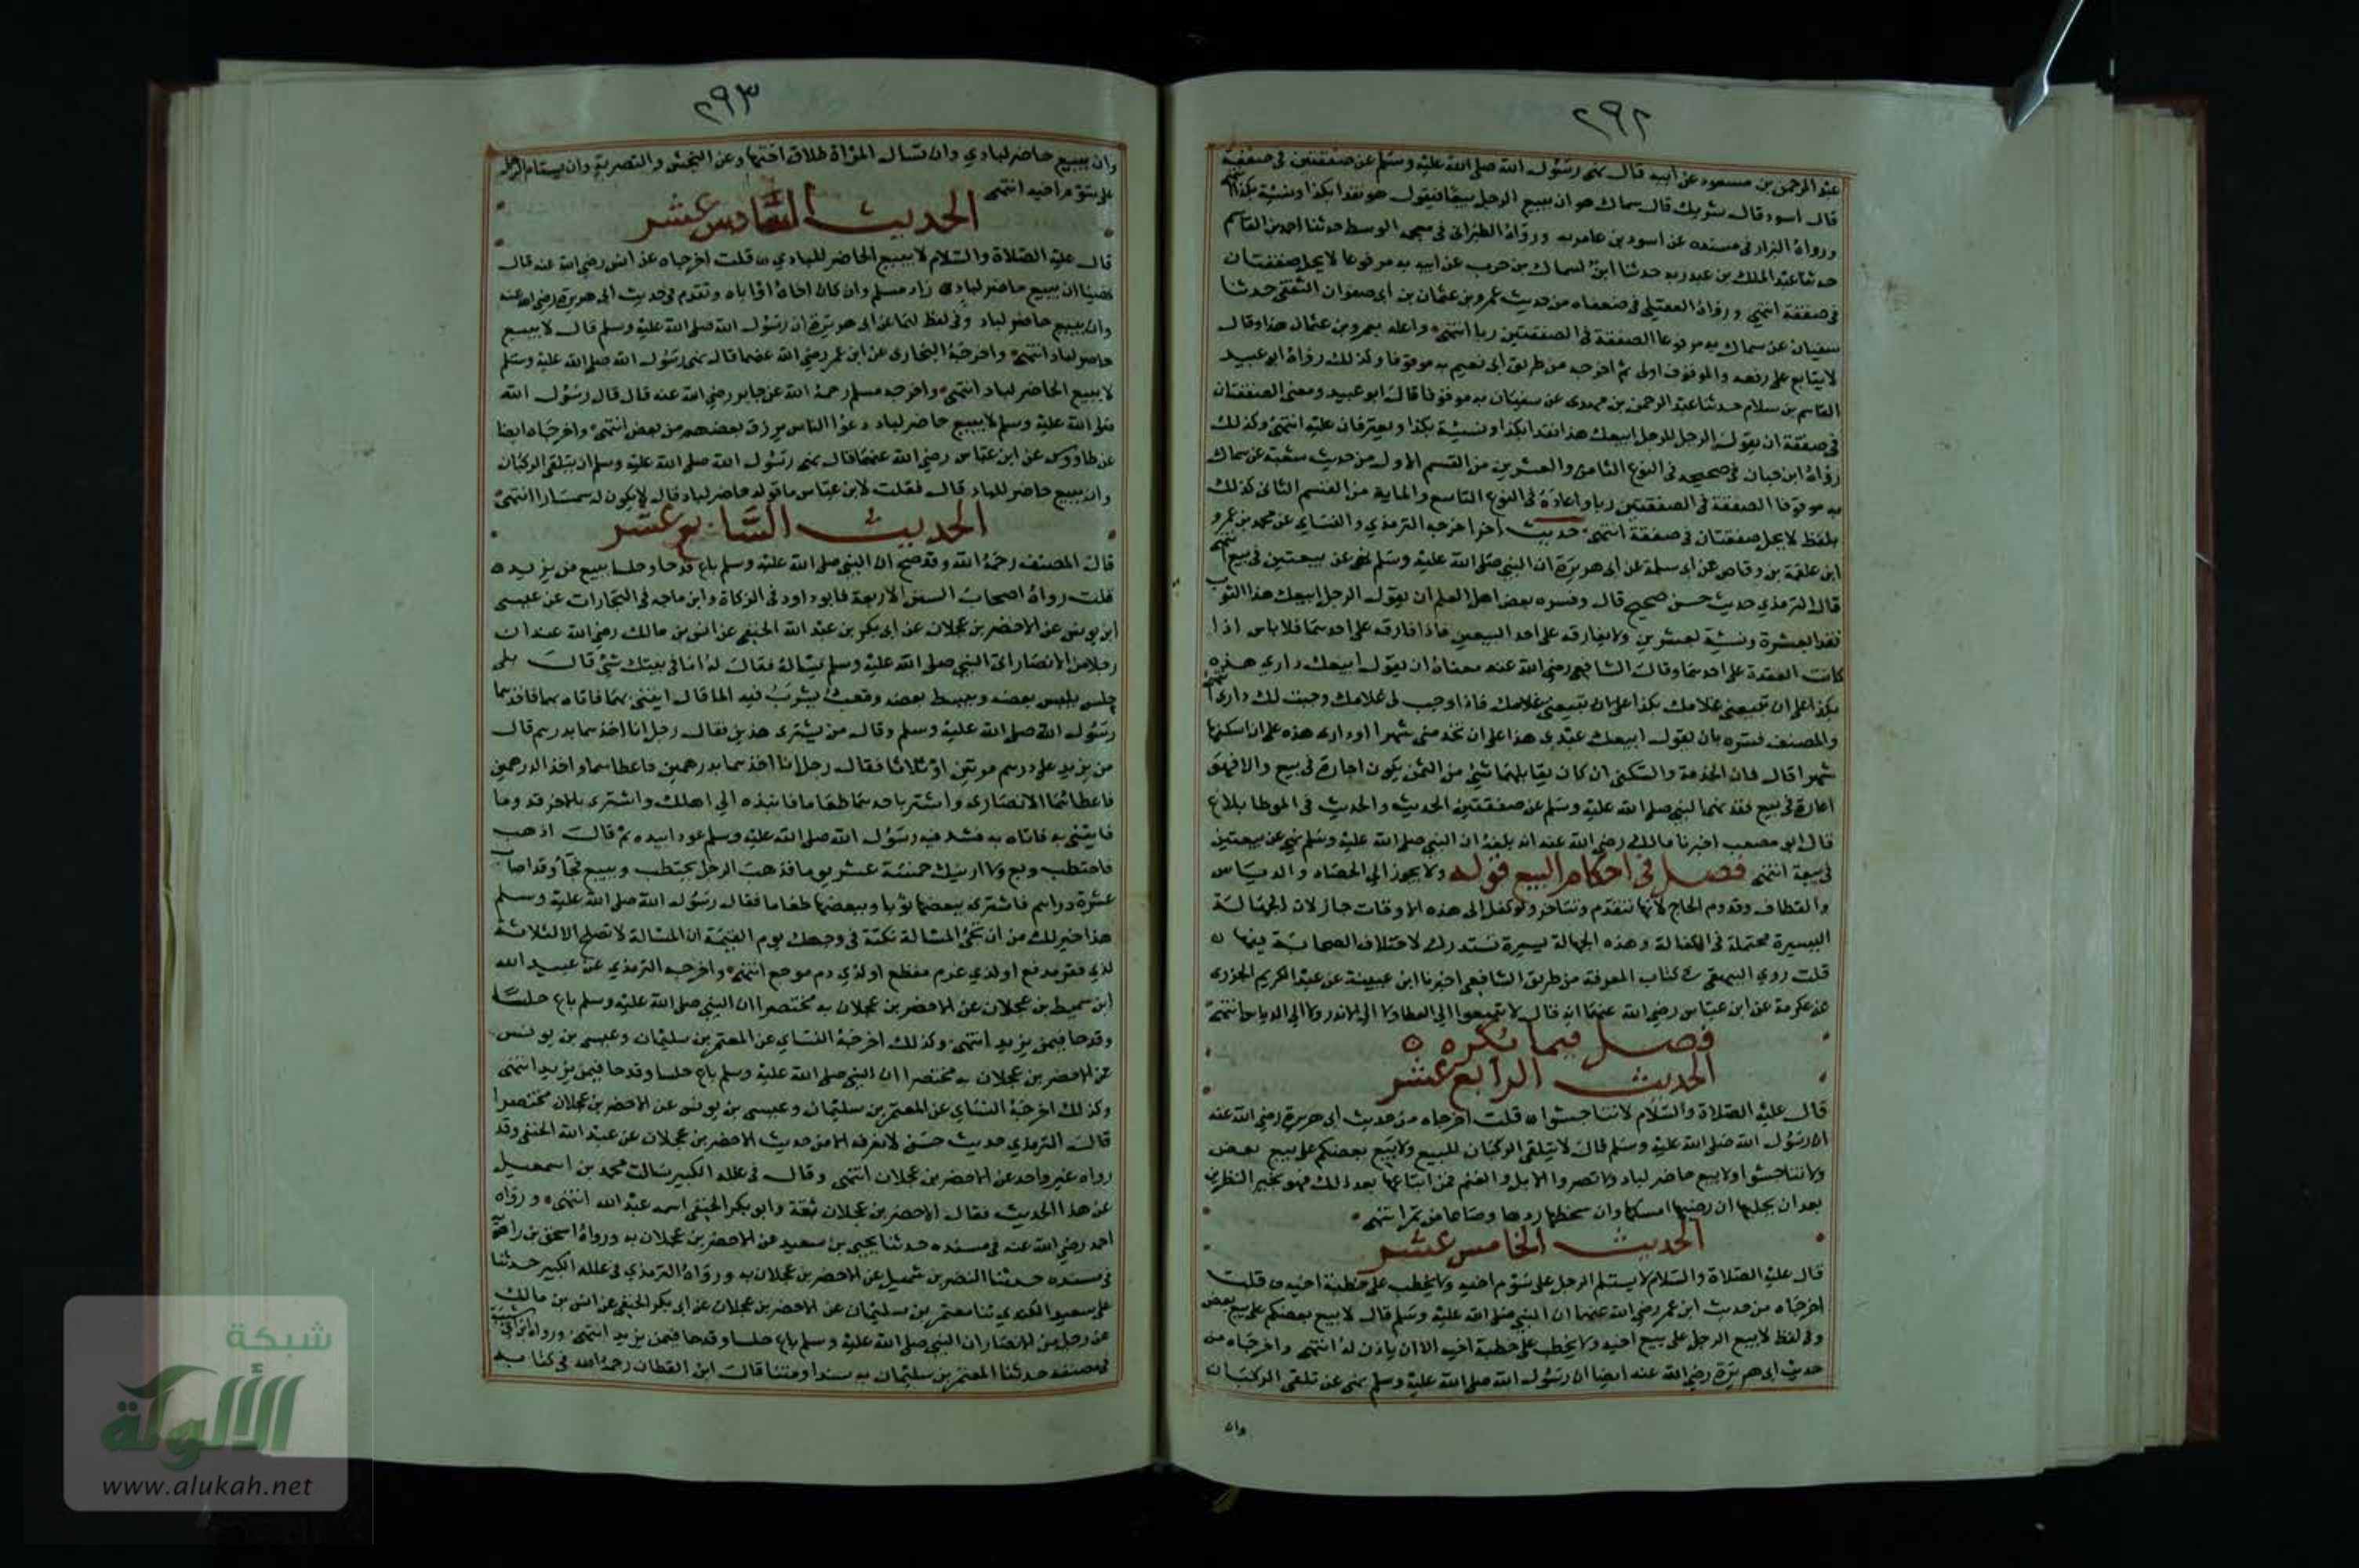 ٢٩٢
عبد الرحمن بن مسعود عن ابيه قال نهى رسول الله صلى الله عليه وسلم عن صفقتين في صفقة
قال اسود قال شريك قال سماك هو ان يبيع الرجل بيعا فيقول هو نقدا بكذا ونسية بكذا انتهى
ورواه البزار في مسنده عن اسود بن عامر به ورواه الطبراني في معجمه الوسط حدثنا احمد بن القاسم
حدثنا عبد الملك بن عبد ربه حدثنا ابن السماك بن حرب عن ابيه به مرفوعا لا يحل صفقتان
في صفقة انتهى ورواه العقيلي في ضعفاه من حديث عمرو بن عثمان بن ابي صفوان الثقفي حدثنا
سفيان عن سماك به مرفوعا الصفقة في الصفقتين ربا انتهى واعله بعمرو بن عثمان هذا وقال
لا يتابع على رفعه والموقوف اولى ثم اخرجه من طريق ابي نعيم به موقوفا وكذلك رواه ابو عبيد
القاسم بن سلام حدثنا عبد الرحمن بن مهدي عن سفيان به موقوفا قال ابو عبيد ومعنى الصفقتان
في صفقة ان يقول الرجل للرجل ابيعك هذا نقدا بكذا ونسية بكذا ويفترقان عليه انتهى وكذلك
رواه ابن حبان في صحيحه في النوع الثامن والعشرين من القسم الاول من حديث شعبة عن سماك
به موقوفا الصفقة في الصفقتين ربا واعاده في النوع التاسع والماية من القسم الثاني كذلك
بلفظ لا يحل صفقتان في صفقة انتهى حديث اخر اخرجه الترمذي والنساي عن محمد بن عمرو
ابن علقمة بن وقاص عن ابي سلمة عن ابي هريرة ان النبي صلى الله عليه وسلم نهى عن بيعتين في بيع انتهى
قال الترمذي حديث حسن صحيح قال وفسره بعض اهل العلم ان يقول الرجل ابيعك هذا الثوب
نقدا بعشرة ونسية بعشرين ولا يفارقه على احد البيعين فاذا فارقه على احدهما فلا باس اذا
كانت العقدة على احدهما وقال الشافعي رضي الله عنه معناه ان يقول ابيعك داري هذه
بكذا على ان تبيعني غلامك بكذا فاذا وجب لي غلامك وجبت لك داري انتهى
والمصنف فسره بان يقول ابيعك عبدي هذا على ان تخدمني شهرا او داري هذه على ان اسكنها
شهرا قال فان الخدمة والسكنى ان كان يقابلهما شي من الثمن يكون اجارة في بيع والا فهو
اعارة في بيع فقد نهى النبي صلى الله عليه وسلم عن صفقتين الحديث والحديث في الموطا بلاغ
قال ابو مصعب اخبرنا مالك رضي الله عنه انه بلغه ان النبي صلى الله عليه وسلم نهي عن بيعتين
في بيعة انتهى فصل في احكام البيع قوله ولا يجوز الي الحصاد والدياس
والقطاف وقدوم الحاج لانها تتقدم وتتاخر ولو كفل الى هذه الاوقات جاز لان الجهالة
اليسيرة محتملة في الكفالة وهذه الجهالة يسيرة تستدرك لاختلاف الصحابة فيها
قلت روي البيهقي في كتاب المعرفة من طريق الشافعي اخبرنا ابن عيينة عن عبد الكريم الجزري
عن عكرمة عن ابن عباس رضي الله عنهما انه قال لا تبيعوا الي العطا ولا الى الاندر ولا الي الدياس انتهى
فصل فيما يكره
الحديث الرابع عشر
قال عليه الصلاة والسلام لا تناجشوا قلت اخرجاه من حديث ابي هريرة رضي الله عنه
ان رسول الله صلى الله عليه وسلم قال لا يتلقى الركبان للبيع ولا يبع بعضكم على بيع بعض
ولا تناجشوا ولا يبع حاضر لباد ولا تصروا الابل والغنم فمن ابتاعها بعد ذلك فهو بخير النظرين
بعد ان يحلبها ان رضيها امسكها وان سخطها ردها وصاعا من تمر انتهى
الحديث الخامس عشر
قال عليه الصلاة والسلام لا يستلم الرجل على سوم اخيه ولا يخطب على خطبة اخيه قلت
اخرجاه من حديث ابن عمر رضي الله عنهما ان النبي صلى الله عليه وسلم قال لا يبيع بعضكم على بيع بعض
وفي لفظ لا يبيع الرجل على بيع اخيه ولا يخطب على خطبة اخيه الا ان ياذن له انتهى واخرجاه من
حديث ابي هريرة رضي الله عنه ايضا ان رسول الله صلى الله عليه وسلم نهى عن تلقي الركبان
وان
٢٩٣
وان يبيع حاضر لبادي وان تسال المراة طلاق اختها وعن النجش والتصرية وان يستام الرجل
على سوم اخيه انتهى
الحديث السادس عشر
قال عليه الصلاة والسلام لا يبيع الحاضر للبادي قلت اخرجاه عن انس رضي الله عنه قال
نهينا ان يبيع حاضر لبادي زاد مسلم وان كان اخاه او اباه وتقدم في حديث ابي هريرة رضي الله عنه
وان يبيع حاضر لباد وفي لفظ لهما عن ابي هريرة ان رسول الله صلى الله عليه وسلم قال لا يبيع
حاضر لباد انتهى واخرجه البخاري عن ابن عمر رضي الله عنهما قال نهى رسول الله صلى الله عليه وسلم
لا يبيع الحاضر لباد انتهى واخرجه مسلم رحمه الله عن جابر رضي الله عنه قال قال رسول الله
صلى الله عليه وسلم لا يبيع حاضر لباد دعوا الناس يرزق بعضهم من بعض انتهى واخرجاه ايضا
عن طاووس عن ابن عباس رضي الله عنهما قال نهى رسول الله صلى الله عليه وسلم ان يتلقى الركبان
وان يبيع حاضر للباد قال فقلت لابن عباس ما قوله حاضر لباد قال لا يكون له سمسارا انتهى
الحديث السابع عشر
قال المصنف رحمه الله وقد صح ان النبي صلى الله عليه وسلم باع قدحا وحلسا ببيع من يزيد
قلت رواه اصحاب السنن الاربعة فابو داود في الزكاة وابن ماجه في التجارات عن عيسى
ابن يونس عن الاخضر بن عجلان عن ابي بكر بن عبد الله الحنفي عن انس بن مالك رضي الله عنه ان
رجلا من الانصار اتى النبي صلى الله عليه وسلم يساله فقال له اما في بيتك شي قال بلى
حلس يلبس بعضه ويبسط بعضه وقعب يشرب فيه الما قال ايتني بهما فاتاه بهما فاخذهما
رسول الله صلى الله عليه وسلم وقال من يشتري هذين فقال رجل انا اخذهما بدرهم قال
من يزيد على درهم مرتين او ثلاثا فقال رجل انا اخذهما بدرهمين فاعطاهما واخذ الدرهمين
فاعطاهما الانصاري واشتر باحدهما طعاما فانبذه الي اهلك واشتري بالاخر قدوما
فايتني به فاتاه به فشد فيه رسول الله صلى الله عليه وسلم عودا بيده ثم قال اذهب
فاحتطب وبع ولا ارينك خمسة عشر يوما فذهب الرجل يحتطب ويبيع فجا وقد اصاب
عشرة دراهم فاشترى ببعضها ثوبا وببعضها طعاما فقال رسول الله صلى الله عليه وسلم
هذا خير لك من ان تجئ المسالة نكتة في وجهك يوم القيمة ان المسالة لا تصلح الا لثلاثة
لذي فقر مدقع او لذي غرم مفظع او لذي دم موجع انتهى واخرجه الترمذي عن عبيد الله
ابن شميط بن عجلان عن الاخضر بن عجلان به مختصرا ان النبي صلى الله عليه وسلم باع حلسا
وقدحا فيمن يزيد انتهى وكذلك اخرجه النساي عن المعتمر بن سليمان وعيسى بن يونس
عن الاخضر بن عجلان به مختصرا ان النبي صلى الله عليه وسلم باع حلسا وقدحا فيمن يزيد انتهى
وكذلك اخرجه النساي عن المعتمر بن سليمان وعيسى بن يونس عن الاخضر بن عجلان مختصرا
قال الترمذي حديث حسن لا نعرفه الا من حديث الاخضر بن عجلان عن عبد الله الحنفي وقد
رواه غير واحد عن الاخضر بن عجلان انتهى وقال في علله الكبير سالت محمد بن اسمعيل
عن هذا الحديث فقال الاخضر بن عجلان ثقة وابو بكر الحنفي اسمه عبد الله انتهى ورواه
احمد رضي الله عنه في مسنده حدثنا يحيى بن سعيد عن الاخضر بن عجلان به ورواه اسحق بن راهويه
في مسنده حدثنا النضر بن شميل عن الاخضر بن عجلان به ورواه الترمذي في علله الكبير حدثنا
علي بن سعيد الكندي ثنا معتمر بن سليمان عن الاخضر بن عجلان عن ابي بكر الحنفي عن انس بن مالك
عن رجل من الانصار ان النبي صلى الله عليه وسلم باع حلسا وقدحا فيمن يزيد انتهى ورواه ابن ابي شيبة
في مصنفه حدثنا المعتمر بن سليمان به سندا ومتنا قال ابن القطان رحمه الله في كتابه
شبكة
الألوكة
www.alukah.net